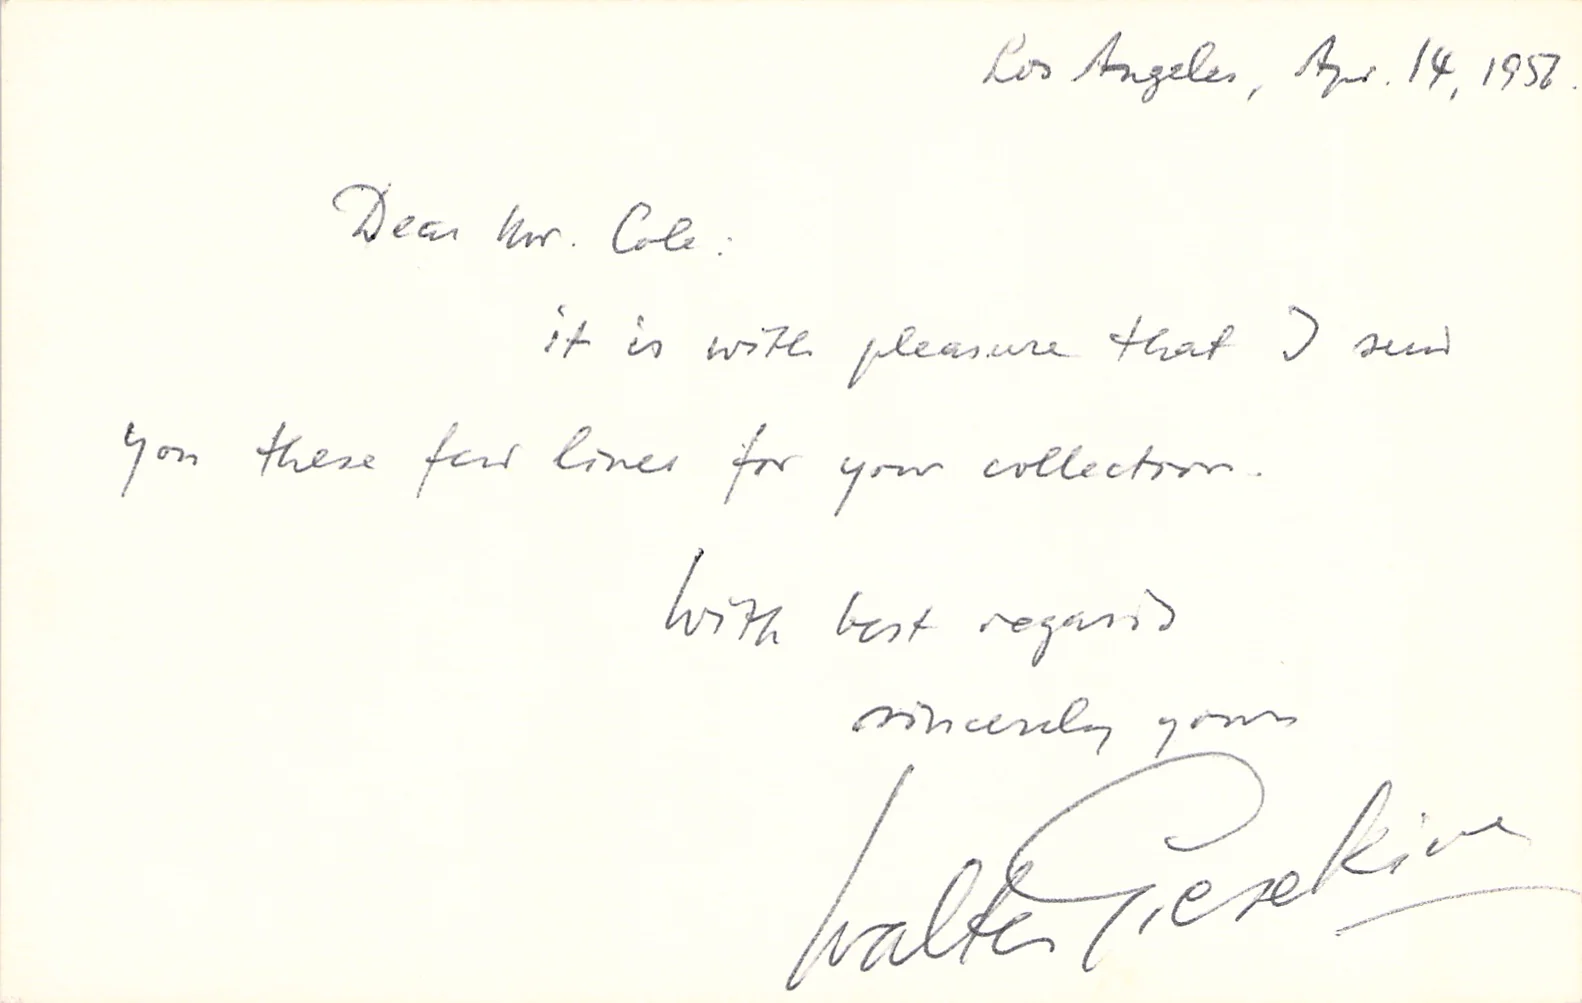 Los Angeles, Apr. 14, 1956.
Dear Mr. Cole:
it is with pleasure that I send
you these few lines for your collection.
With best regards
sincerely yours
Walter Gieseking